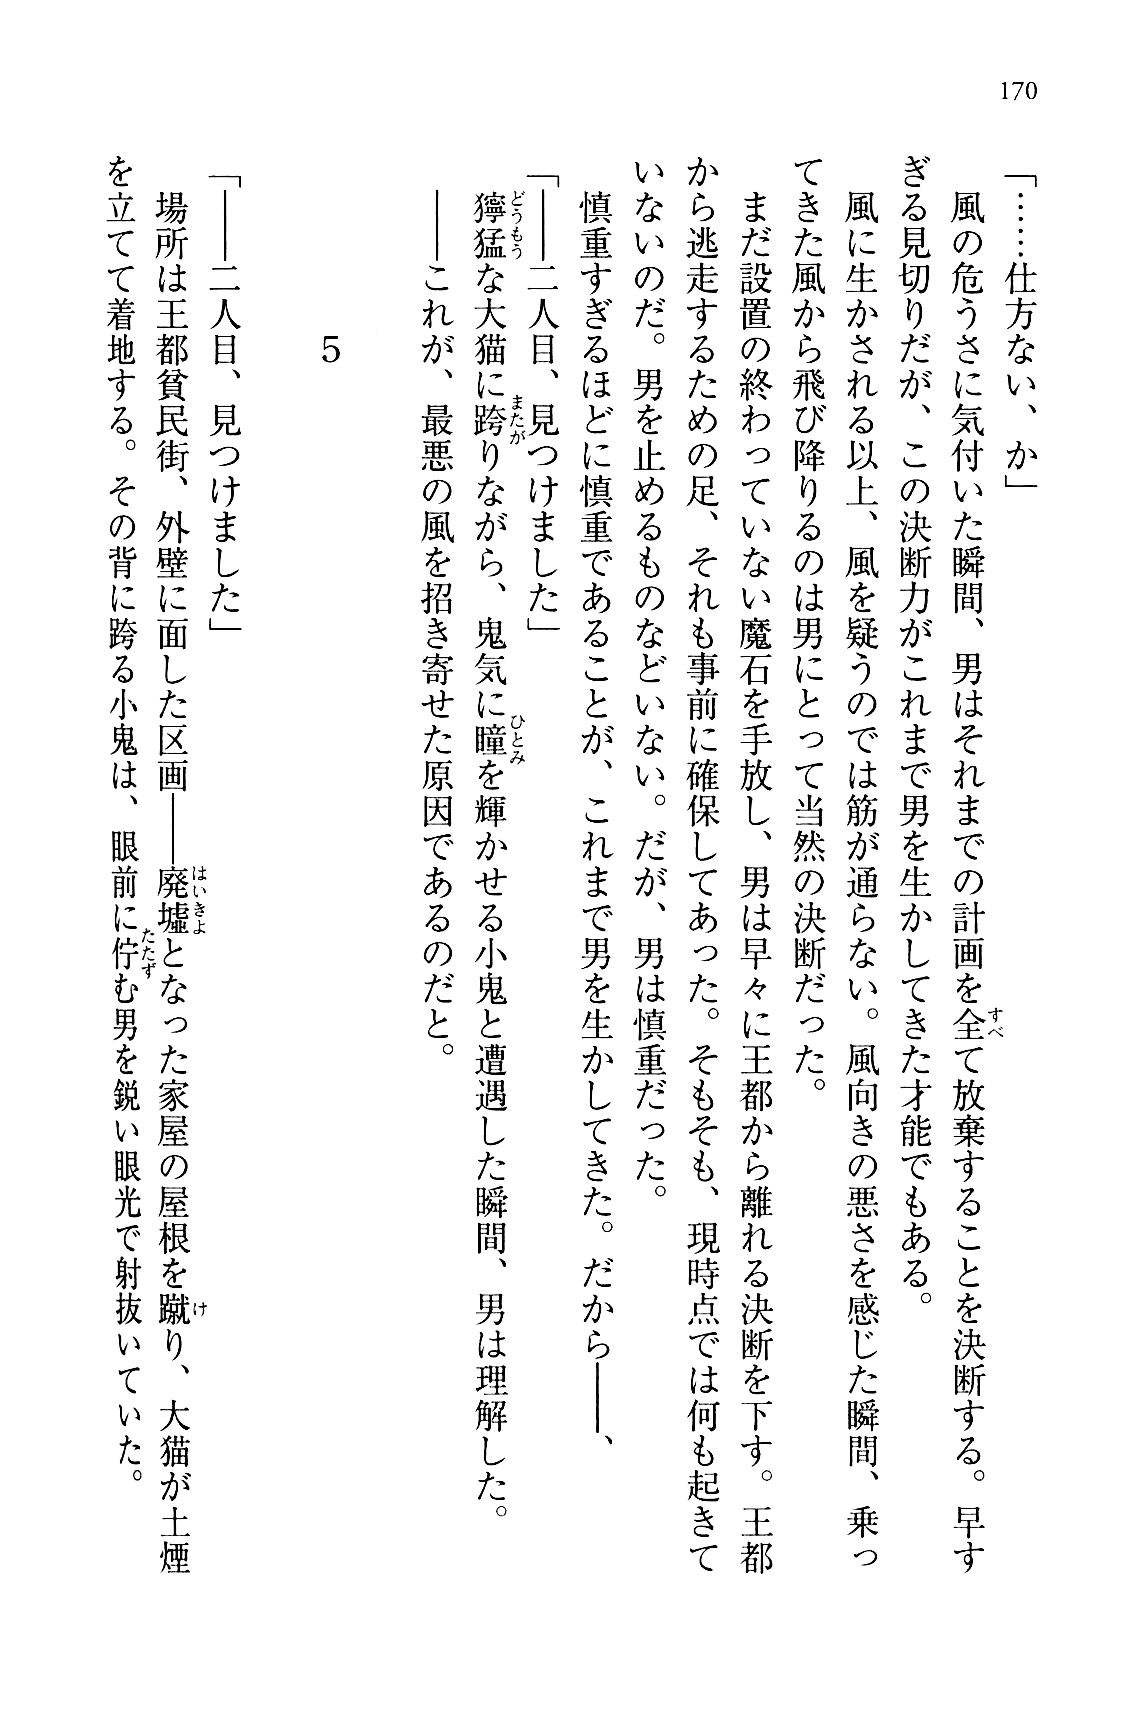 170
「……仕方ない、か」
風の危うさに気付いた瞬間、男はそれまでの計画を全て放棄することを決断する。早す
ぎる見切りだが、この決断力がこれまで男を生かしてきた才能でもある。
風に生かされる以上、風を疑うのでは筋が通らない。風向きの悪さを感じた瞬間、乗っ
てきた風から飛び降りるのは男にとって当然の決断だった。
まだ設置の終わっていない魔石を手放し、男は早々に王都から離れる決断を下す。王都
から逃走するための足、それも事前に確保してあった。そもそも、現時点では何も起きて
いないのだ。男を止めるものなどいない。だが、男は慎重だった。
慎重すぎるほどに慎重であることが、これまで男を生かしてきた。だから――、
「――二人目、見つけました」
獰猛な大猫に跨りながら、鬼気に瞳を輝かせる小鬼と遭遇した瞬間、男は理解した。
――これが、最悪の風を招き寄せた原因であるのだと。
5
「――二人目、見つけました」
場所は王都貧民街、外壁に面した区画――廃墟となった家屋の屋根を蹴り、大猫が土煙
を立てて着地する。その背に跨る小鬼は、眼前に佇む男を鋭い眼光で射抜いていた。